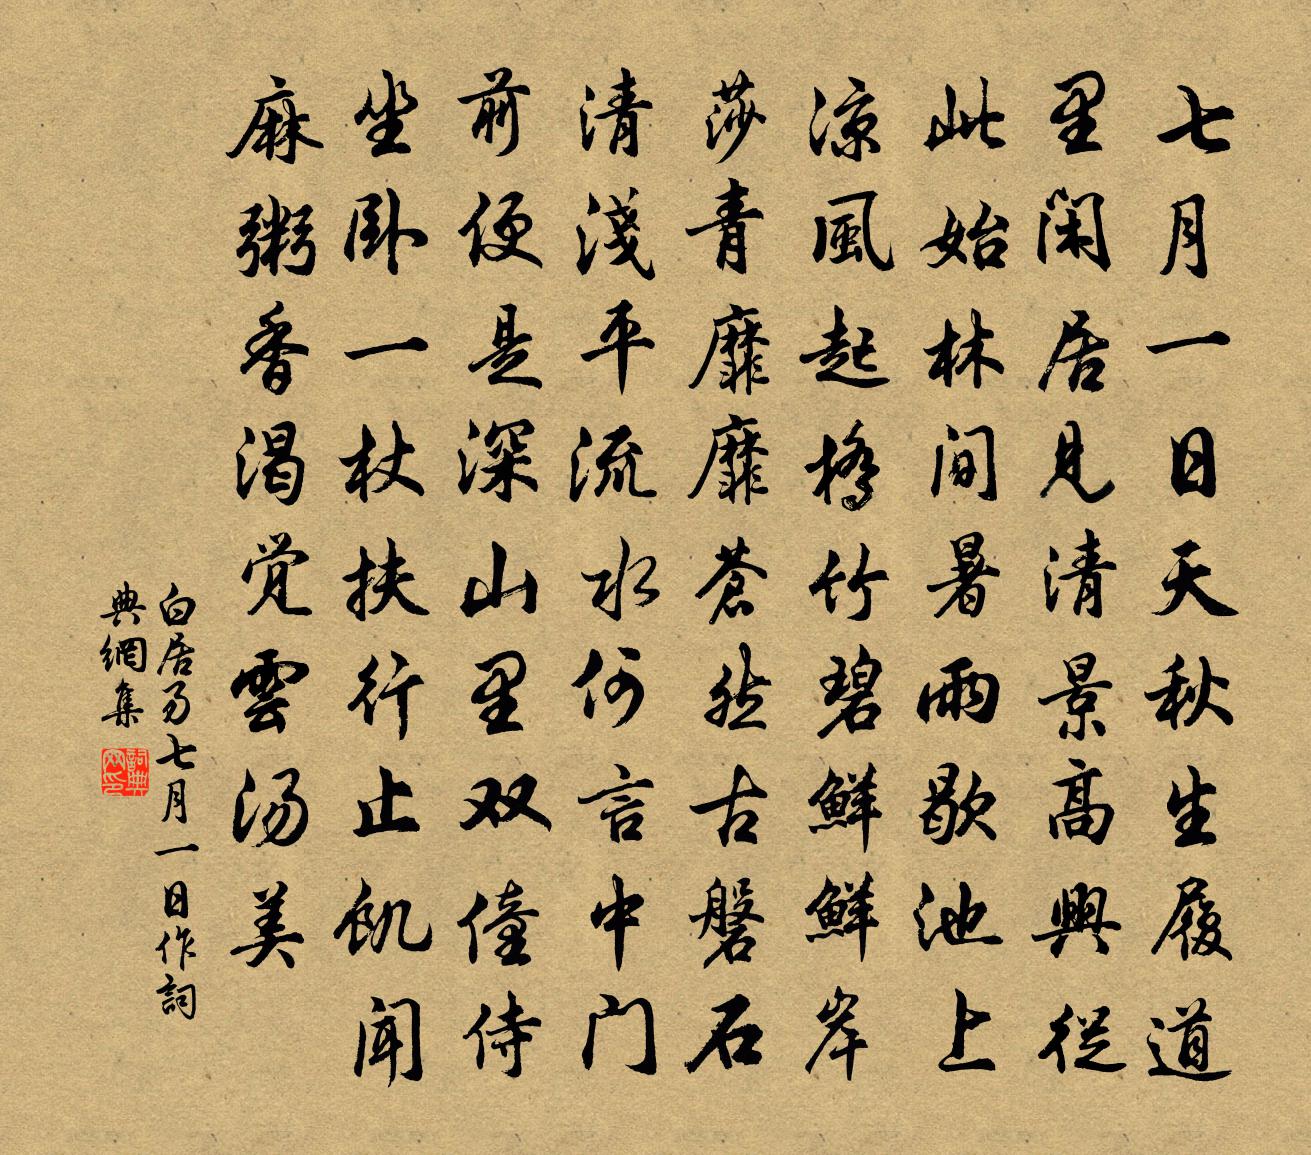 七月一日天秋生履道
里闲居見清景高興從
此始林間暑雨歇池上
涼風起橋竹碧鮮鮮岸
莎青靡靡蒼然古磐石
清淺平流水何言中门
前便是深山里双僮侍
坐卧一杖扶行止飢闻
麻粥香渴觉雲汤美
白居易七月一日作詞
典網集
詞典網印